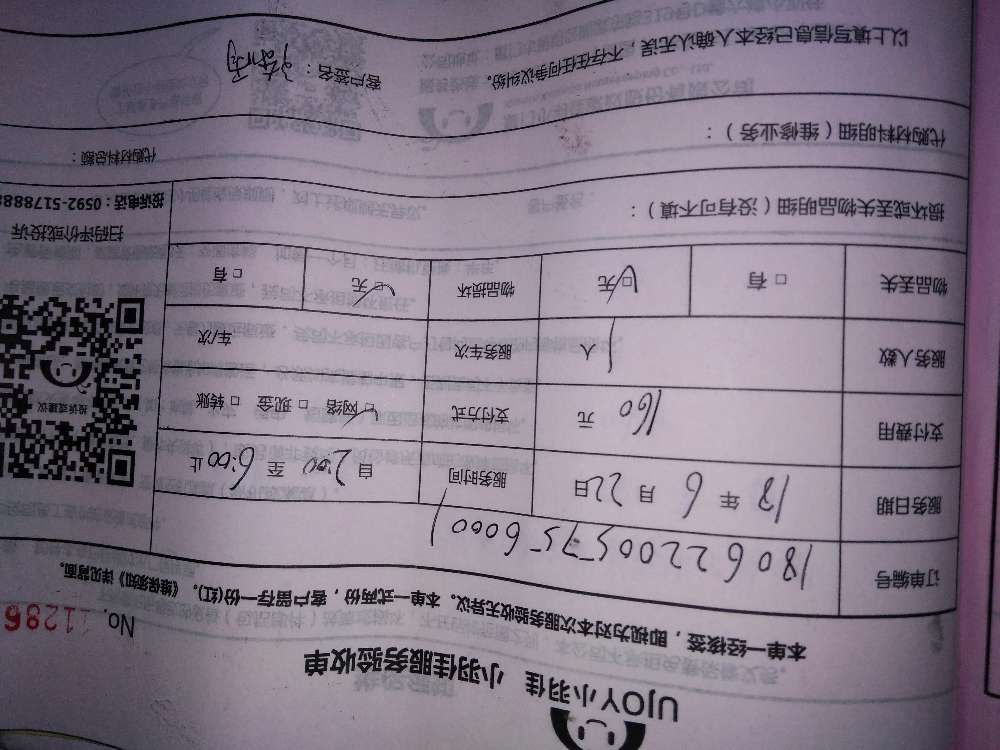 UJOY小羽佳 小羽佳服务验收单
No. 11286
本单一经核签，即视为对本次服务验收无异议。本单一式两份，客户留存一份(红)。《维保须知》详见背面。
订单编号 1806220057560001
服务日期 18 年 6 月 22日 服务时间 自 2:00 至 6:00止
支付费用 160 元 支付方式 □网络 □现金 □转账
服务人数 1 人 服务车次 车/次
物品丢失 □有 □无 物品损坏 □无 □有
投诉或建议
扫码评价或投诉
投诉电话：0592-517888
损坏或丢失物品明细（没有可不填）：
代购材料明细（维修业务）： 代购材料总额：
以上填写信息已经本人确认无误，不存在任何争议纠纷。 客户签名：